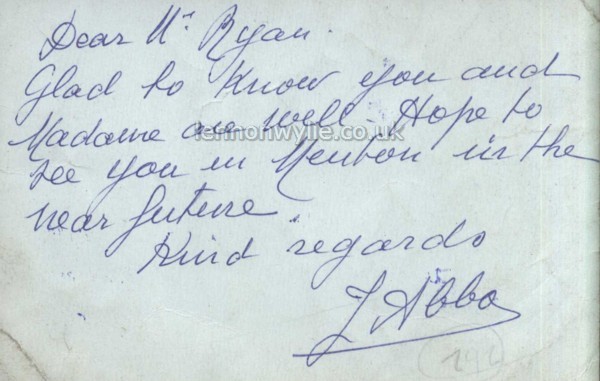 Dear Mr Ryan.
Glad to know you and
Madame are well. Hope to
lennonwylie.co.uk
see you in Menton in the
near future.
Kind regards
J Abbo
241